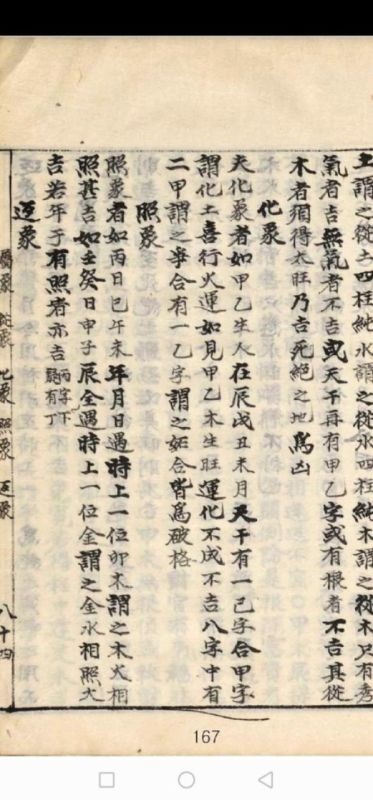 土謂之從土四柱純水謂之從水四柱純木謂之從木只有秀
氣者吉無氣者不吉或天干再有甲乙字或有根者不吉其從
木者須得太旺乃吉死絕之地為凶
化象
夫化象者如甲乙生人在辰戌丑未月天干有一己字合甲字
謂化土喜行火運如見甲乙木生旺運化不成不吉八字中有
二甲謂之爭合有一乙字謂之妬合皆爲破格
照象
照象者如丙日巳午未年月日遇時上一位卯木謂之木火相
照甚吉如壬癸日申子辰全遇時上一位金謂之金水相照大
吉若年干有照者亦吉
返象
從象 化象 照象 返象 八十四
167